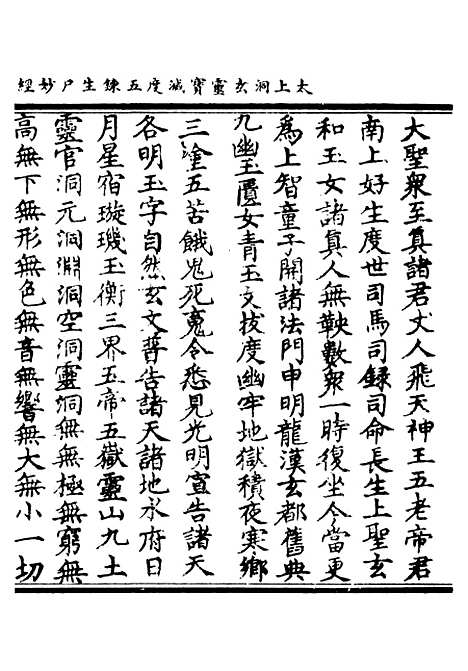 太上洞玄靈寶滅度五鍊生尸妙經
大聖衆至真諸君丈人飛天神王五老帝君
南上好生度世司馬司録司命長生上聖玄
和玉女諸真人無鞅數衆一時復坐今當更
爲上智童子開諸法門申明龍漢玄都舊典
九幽玉匱女青玉文拔度幽牢地獄積夜寒鄉
三塗五苦餓鬼死魂令悉見光明宣告諸天
各明玉字自然玄文普告諸天諸地水府日
月星宿璇璣玉衡三界五帝五嶽靈山九土
靈官洞元洞淵洞空洞靈洞無無極無窮無
高無下無形無色無音無響無大無小一切